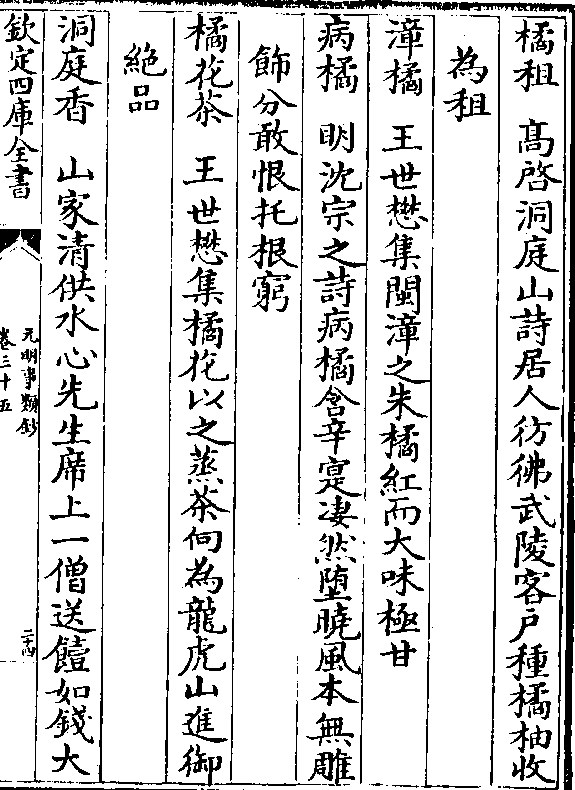 橘租　髙啓洞庭山詩居人彷彿武陵客戸種橘柚收
為租
漳橘　王世懋集閩漳之朱橘紅而大味極甘
病橘　明沈宗之詩病橘含辛寔凄然堕曉風本無雕
飾分敢恨托根窮
橘花茶　王世懋集橘花以之蒸茶向為龍虎山進御
絶品
洞庭香　山家清供水心先生席上一僧送饐如錢大
欽定四庫全書
元明事類鈔
卷三十五
二十四